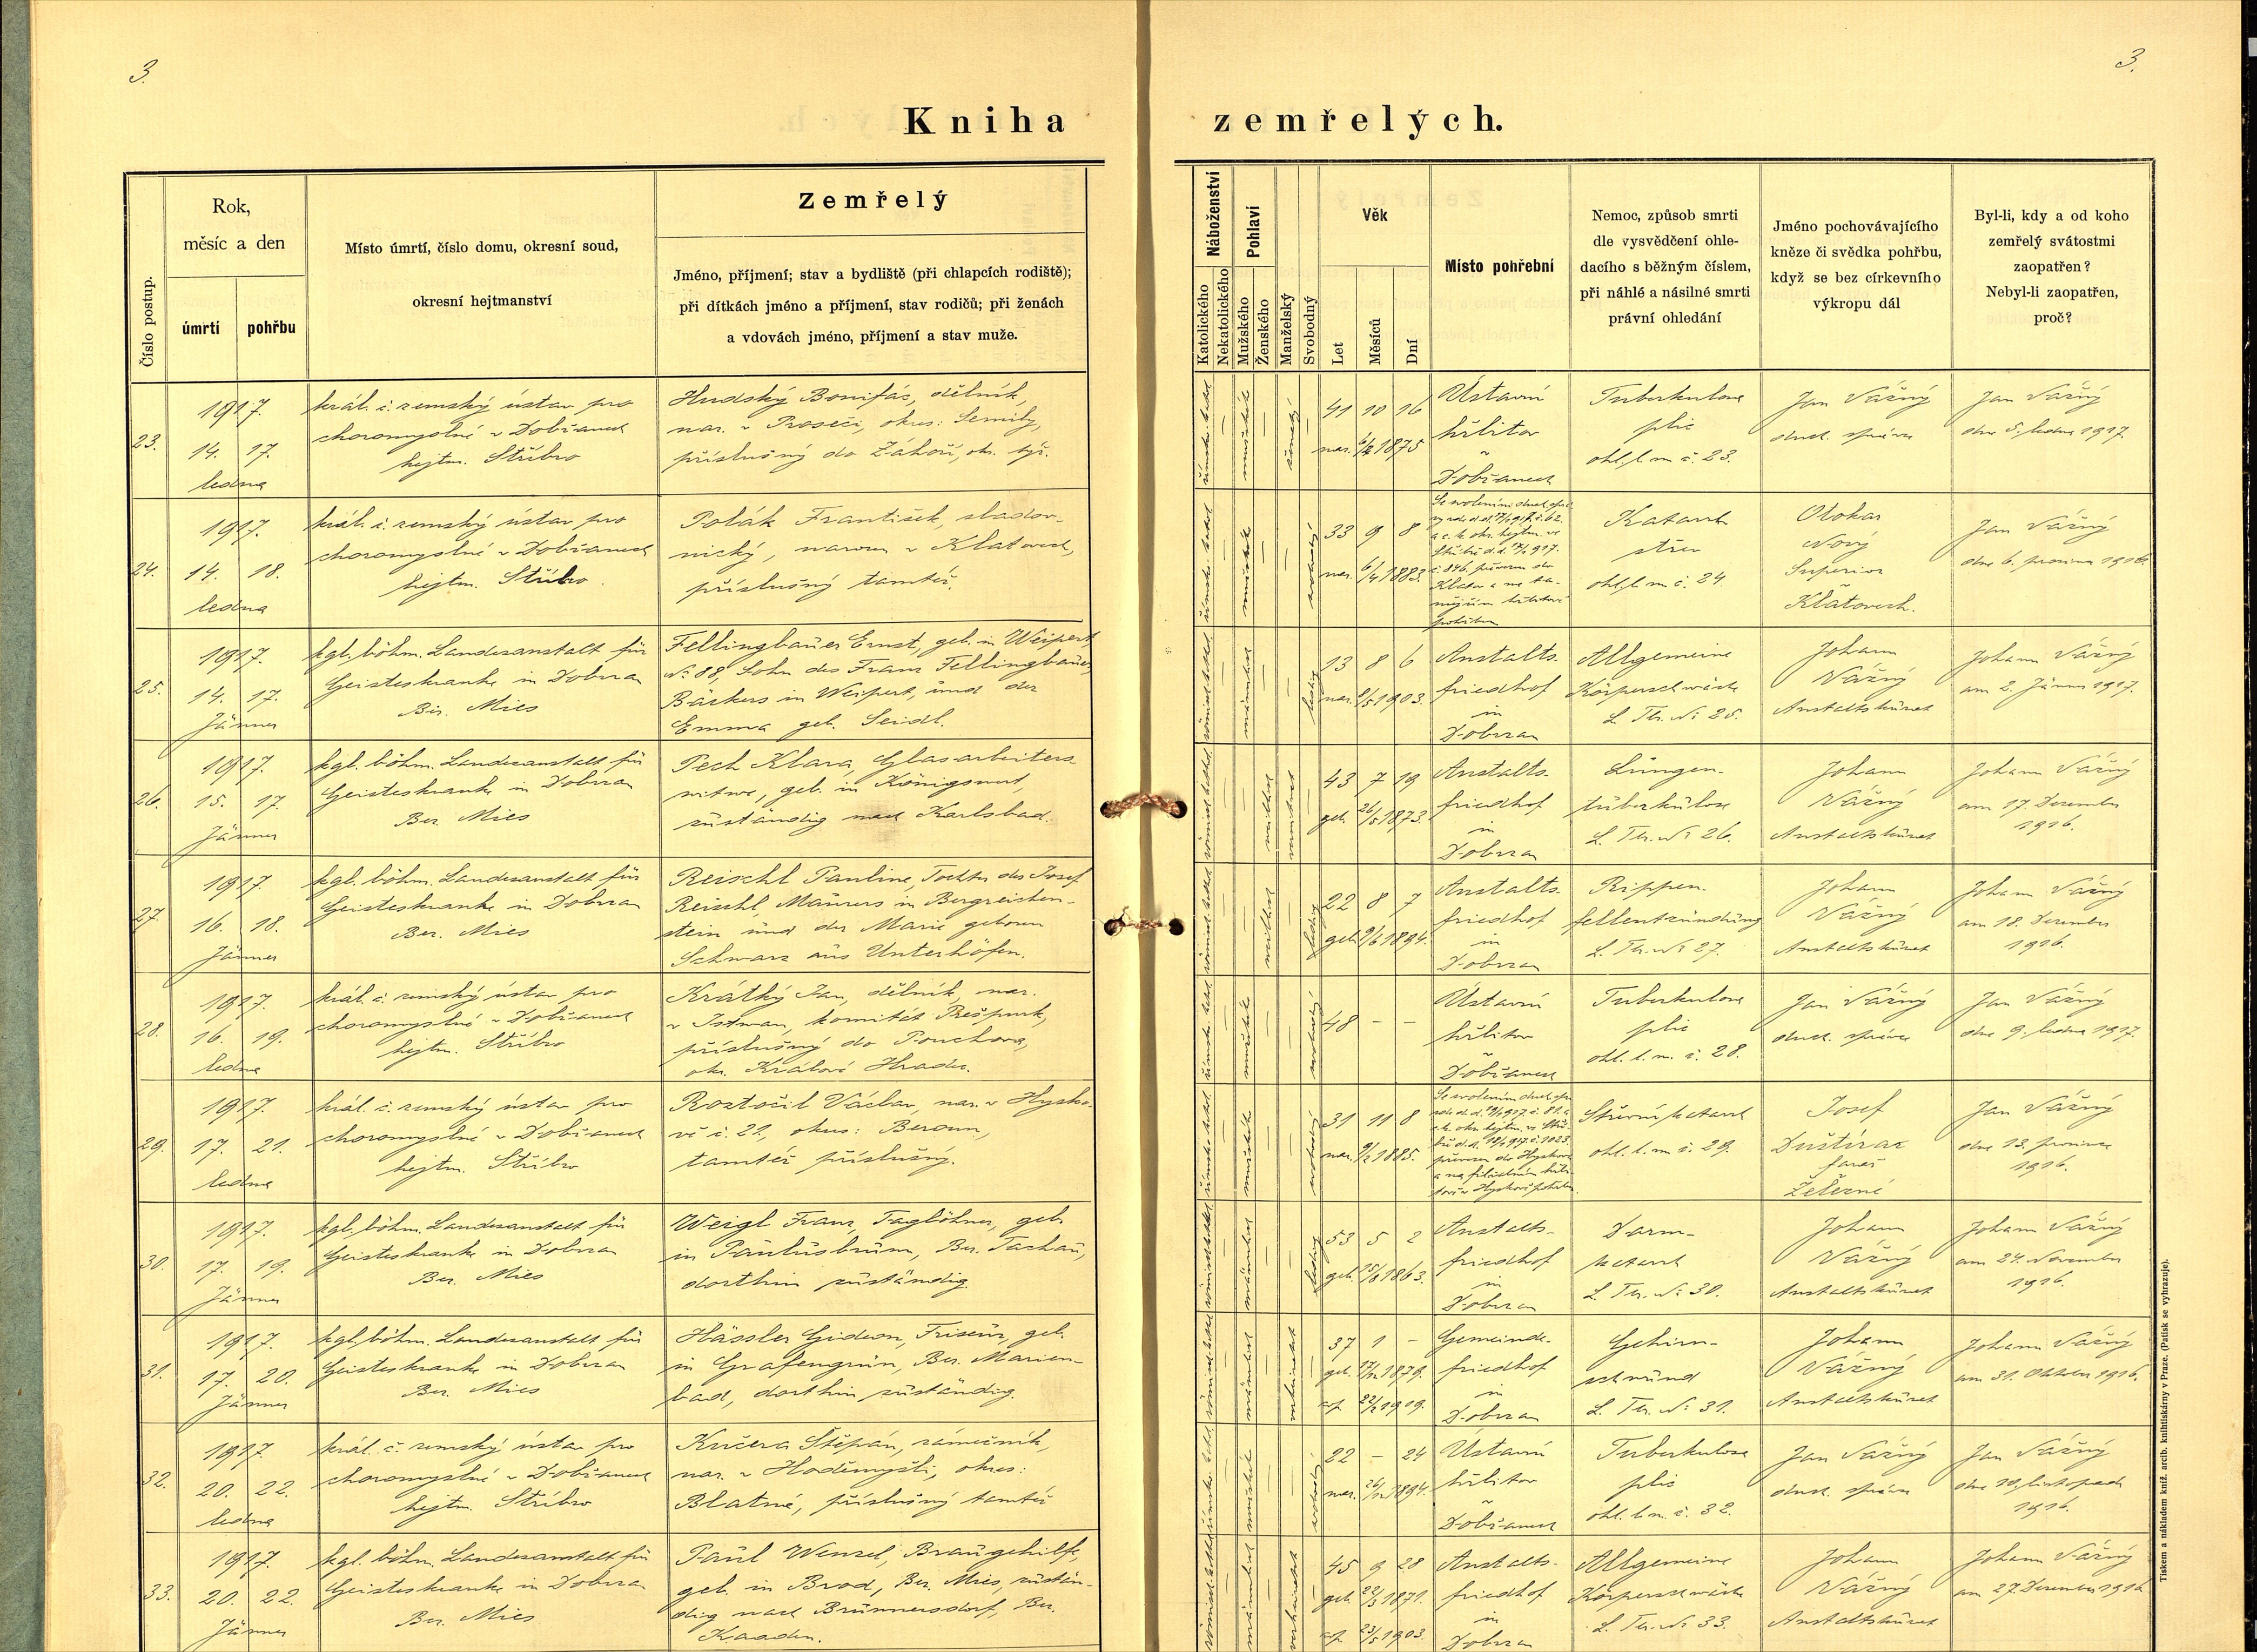 3.
3.
Kniha zemřelých.
Číslo postup.
Rok,
měsíc a den
úmrtí
pohřbu
Místo úmrtí, číslo domu, okresní soud,
okresní hejtmanství
Zemřelý
Jméno, příjmení; stav a bydliště (při chlapcích rodiště);
při dítkách jméno a příjmení, stav rodičů; při ženách
a vdovách jméno, příjmení a stav muže.
Náboženství
Katolického
Nekatolického
Pohlaví
Mužského
Ženského
Manželský
Svobodný
Věk
Let
Měsíců
Dní
Místo pohřební
Nemoc, způsob smrti
dle vysvědčení ohle-
dacího s běžným číslem,
při náhlé a násilné smrti
právní ohledání
Jméno pochovávajícího
kněze či svědka pohřbu,
když se bez církevního
výkropu dál
Byl-li, kdy a od koho
zemřelý svátostmi
zaopatřen?
Nebyl-li zaopatřen,
proč?
23.
1917.
14. 17.
ledna
král. č. zemský ústav pro
choromyslné v Dobřanech
hejtm. Stříbro
Hudský Bonifác, dělník,
nar. v Proseči, okres: Semily,
příslušný do Záhoří, okr. týž.
41 10 16
nar. 6/2 1875
Ústavní
hřbitov
v
Dobřanech
Tuberkulosa
plic
ohl. l. m. č. 23.
Jan Vážný
duch. správce
Jan Vážný
dne 5. ledna 1917.
24.
1917.
14. 18.
ledna
král. č. zemský ústav pro
choromyslné v Dobřanech
hejtm. Stříbro
Polák František, sladov-
nický, narozen v Klatovech,
příslušný tamtéž.
33 9 8
nar. 6/4 1883.
Katarrh
střev
ohl. l. m. č. 24.
Otokar
Nový
Superior
v
Klatovech.
Jan Vážný
dne 6. prosince 1916.
25.
1917.
14. 17.
Jänner
kgl. böhm. Landesanstalt für
Geisteskranke in Dobrzan
Bez. Mies
Fellingbauer Ernst, geb. in Weipert,
No. 88, Sohn des Franz Fellingbauer,
Bäckers in Weipert, und der
Emma geb. Seidl.
ledig
13 8 6
nar. 8/5 1903.
Anstalts-
friedhof
in
Dobrzan
Allgemeine
Körperschwäche
L. Tbr. No 25.
Johann
Vážný
Anstaltskurat
Johann Vážný
am 2. Jänner 1917.
26.
1917.
15. 17.
Jänner
kgl. böhm. Landesanstalt für
Geisteskranke in Dobrzan
Bez. Mies
Pech Klara, Glasarbeiters-
witwe, geb. in Königswert,
zuständig nach Karlsbad.
43 7 19
geb. 26/5 1873.
Anstalts-
friedhof
in
Dobrzan
Lungen-
tuberkulose
L. Tbr. No 26.
Johann
Vážný
Anstaltskurat
Johann Vážný
am 17. Dezember
1916.
27.
1917.
16. 18.
Jänner
kgl. böhm. Landesanstalt für
Geisteskranke in Dobrzan
Bez. Mies
Reischl Pauline, Tochter des Josef
Reischl Maurers in Bergreichen-
stein und der Marie geboren
Schwarz aus Unterhöfen.
ledig
22 8 7
geb. 9/5 1894.
Anstalts-
friedhof
in
Dobrzan
Rippen-
fellentzündung
L. Tbr. No 27.
Johann
Vážný
Anstaltskurat
Johann Vážný
am 18. Dezember
1916.
28.
1917.
16. 19.
ledna
král. č. zemský ústav pro
choromyslné v Dobřanech
hejtm. Stříbro
Krátký Jan, dělník, nar.
v Istwan, komitát Prešpurk,
příslušný do Pouchova,
okr. Králové Hradec.
48 – –
Ústavní
hřbitov
v
Dobřanech
Tuberkulosa
plic
ohl. l. m. č. 28.
Jan Vážný
duch. správce
Jan Vážný
dne 9. ledna 1917.
29.
1917.
17. 21.
ledna
král. č. zemský ústav pro
choromyslné v Dobřanech
hejtm. Stříbro
Roztočil Václav, nar. v Hysko-
vě č. 21., okres: Beroun,
tamtéž příslušný.
31 11 8
nar. 9/2 1885.
Střevní katarrh
ohl. l. m. č. 29.
Josef
Duštíraz
farář
Železné
Jan Vážný
dne 13. prosince
1916.
30.
1917.
17. 19.
Jänner
kgl. böhm. Landesanstalt für
Geisteskranke in Dobrzan
Bez. Mies
Weigl Franz, Taglöhner, geb.
in Paulusbrunn, Bez. Tachau,
dorthin zuständig.
ledig
53 5 2
geb. 15/8 1863.
Anstalts-
friedhof
in
Dobrzan
Darm-
katarrh
L. Tbr. No 30.
Johann
Vážný
Anstaltskurat
Johann Vážný
am 24. November
1916.
31.
1917.
17. 20.
Jänner
kgl. böhm. Landesanstalt für
Geisteskranke in Dobrzan
Bez. Mies
Hässler Gideon, Friseur, geb.
in Grafengrün, Bez. Marien-
bad, dorthin zuständig.
37 1 –
geb. 17/12 1879.
cop. 22/2 1919.
Gemeinde-
friedhof
in
Dobrzan
Gehirn-
schwund
L. Tbr. No 31.
Johann
Vážný
Anstaltskurat
Johann Vážný
am 31. Oktober 1916.
32.
1917.
20. 22.
ledna
král. č. zemský ústav pro
choromyslné v Dobřanech
hejtm. Stříbro
Kučera Štěpán, zámečník,
nar. v Hoděmyšli, okres:
Blatné, příslušný tamtéž
22 – 24
nar. 26/12 1894.
Ústavní
hřbitov
v
Dobřanech
Tuberkulosa
plic
ohl. l. m. č. 32.
Jan Vážný
duch. správce
Jan Vážný
dne 10. listopadu
1916.
33.
1917.
20. 22.
Jänner
kgl. böhm. Landesanstalt für
Geisteskranke in Dobrzan
Bez. Mies
Paul Wenzel, Braugehilfe,
geb. in Brod, Bez. Mies, zustän-
dig nach Brunnersdorf, Bez.
Kaaden.
45 9 28
geb. 22/3 1871.
cop. 23/5 1903.
Anstalts-
friedhof
in
Dobrzan
Allgemeine
Körperschwäche
L. Tbr. No 33.
Johann
Vážný
Anstaltskurat
Johann Vážný
am 27. Dezember 1916
Tiskem a nákladem kníž. arcib. knihtiskárny v Praze. (Patisk se vyhrazuje).